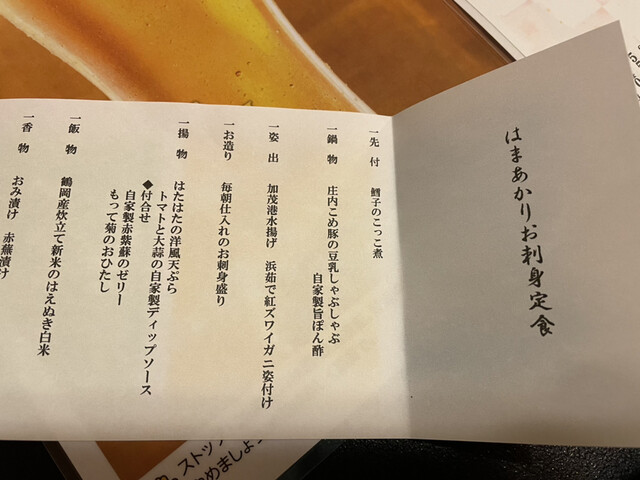 はまあかりお刺身定食
一先付　鱈子のこっこ煮
一鍋物　庄内こめ豚の豆乳しゃぶしゃぶ
自家製旨ぽん酢
一姿出　加茂港水揚げ　浜茹で紅ズワイガニ姿付け
一お造り　毎朝仕入れのお刺身盛り
一揚物　はたはたの洋風天ぷら
トマトと大蒜の自家製ディップソース
◆付合せ
自家製赤紫蘇のゼリー
もって菊のおひたし
一飯物　鶴岡産炊立て新米のはえぬき白米
一香物　おみ漬け　赤蕪漬け
ストップ
めましょう